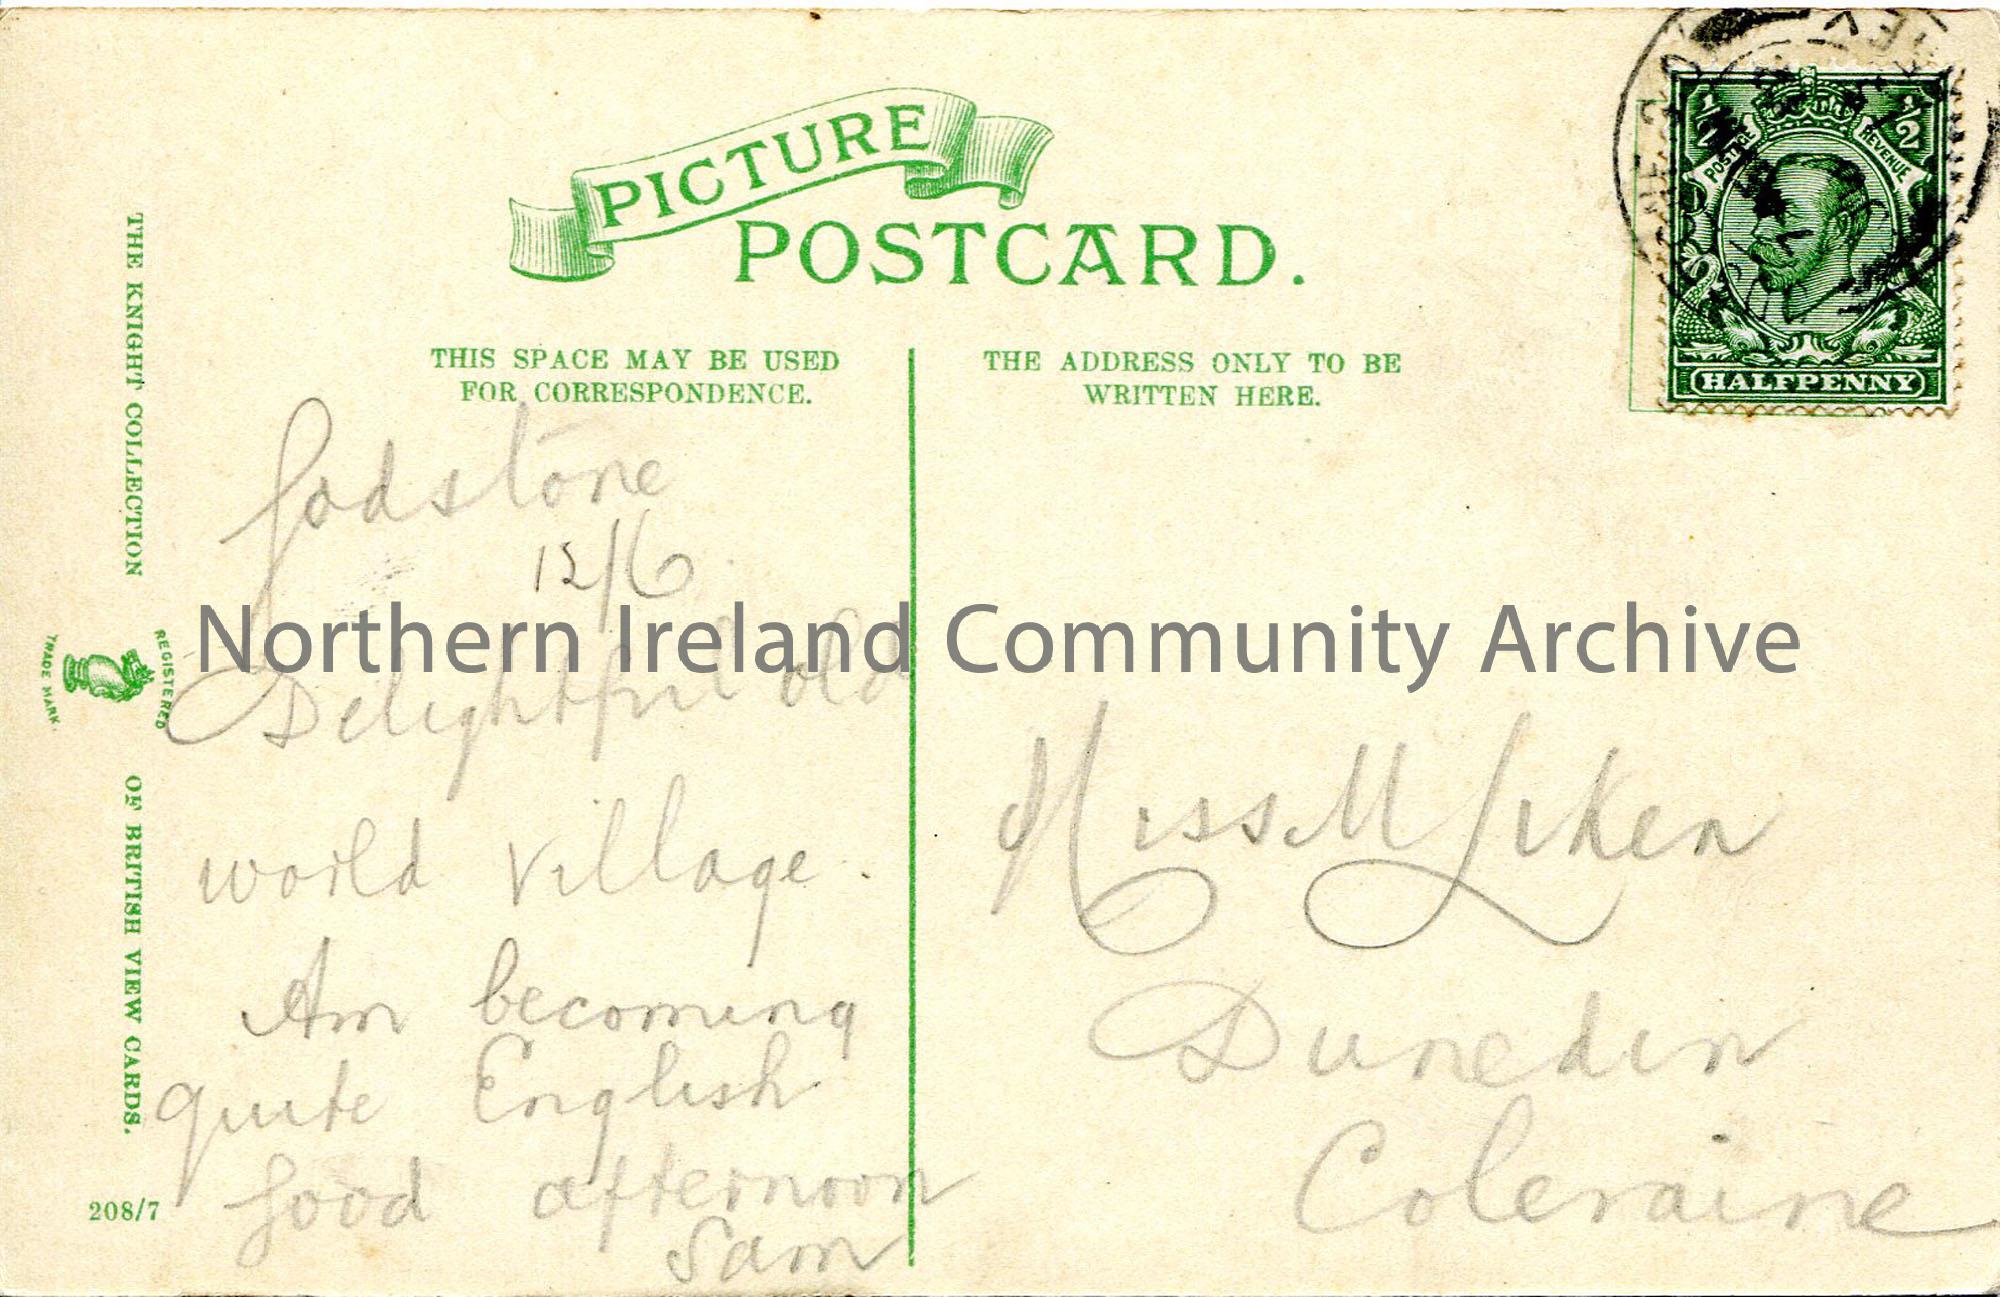 PICTURE
POSTCARD.
THIS SPACE MAY BE USED
FOR CORRESPONDENCE.
THE ADDRESS ONLY TO BE
WRITTEN HERE.
1/2 1/2
POSTAGE REVENUE
HALFPENNY
THE KNIGHT COLLECTION
REGISTERED
TRADE MARK
OF BRITISH VIEW CARDS.
208/7
Godstone
12/6
Delightful old
world village.
Am becoming
quite English
Good afternoon
Sam
Miss M Liken
Dunedin
Coleraine
Northern Ireland Community Archive